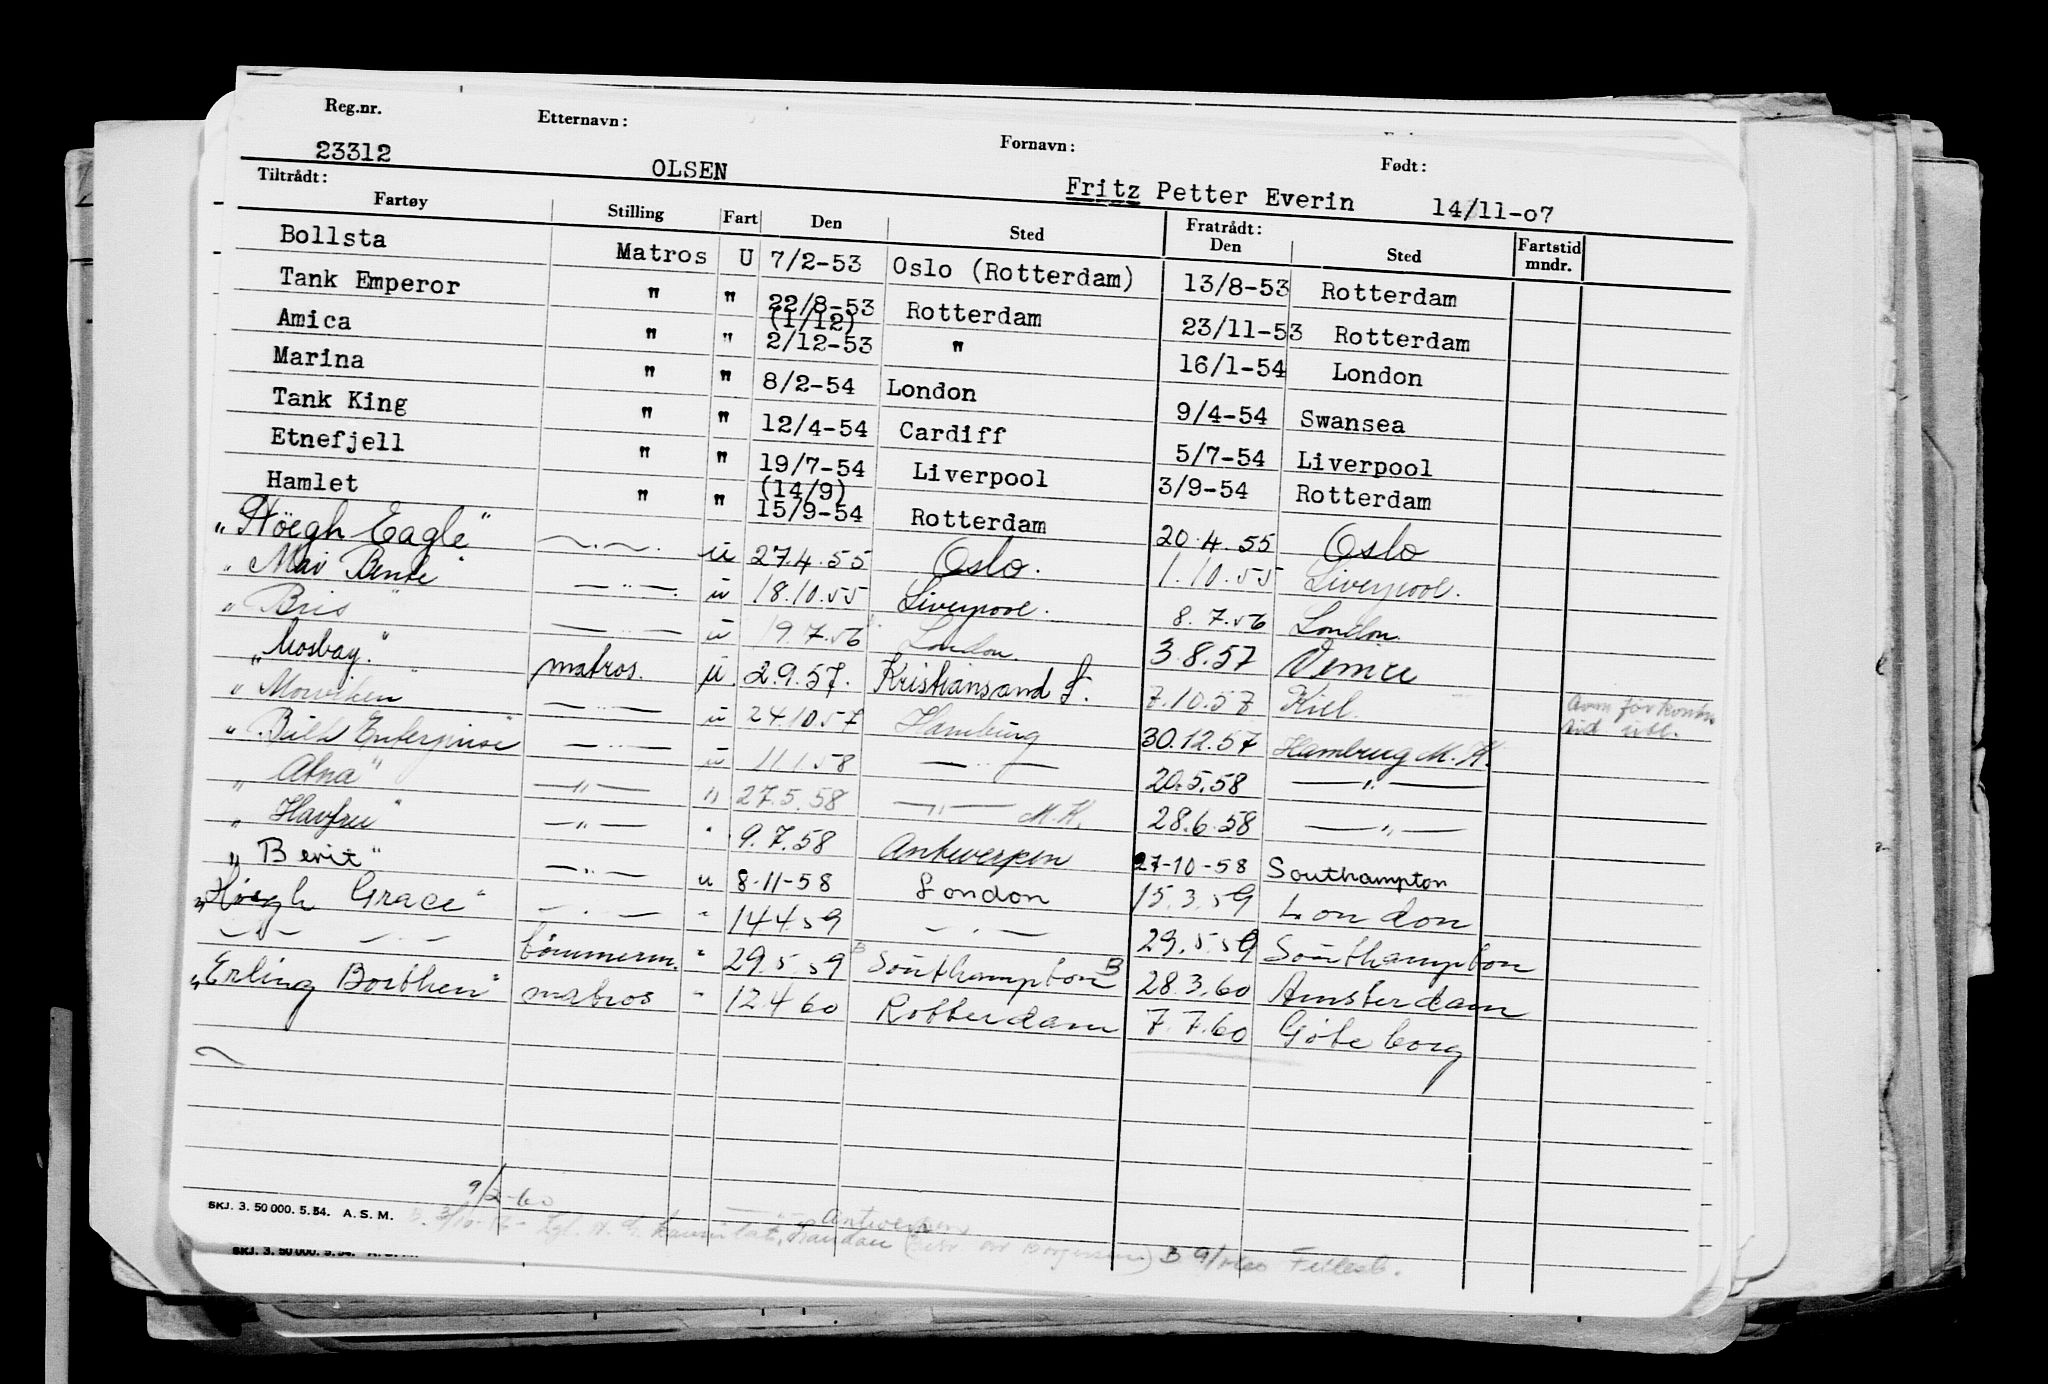 Reg.nr. Etternavn: Fornavn: Født:
23312 OLSEN Fritz Petter Everin 14/11-07
Tiltrådt: Fratrådt:
Fartøy Stilling Fart Den Sted Den Sted Fartstid mndr.
Bollsta Matros U 7/2-53 Oslo (Rotterdam) 13/8-53 Rotterdam
Tank Emperor " " 22/8-53 Rotterdam 23/11-53 Rotterdam
(1/12)
Amica " " 2/12-53 " 16/1-54 London
Marina " " 8/2-54 London 9/4-54 Swansea
Tank King " " 12/4-54 Cardiff 5/7-54 Liverpool
Etnefjell " " 19/7-54 Liverpool 3/9-54 Rotterdam
(14/9)
Hamlet " " 15/9-54 Rotterdam 20.4.55 Oslo
"Höegh Eagle" —.—. u 27.4.55 Oslo. 1.10.55 Liverpool.
"Mai Bente" —..—. u 18.10.55 Liverpool. 8.7.56 London.
"Bris" —..— u 19.7.56 London. 3.8.57 Venice
"Mosbay." matros. u. 2.9.57. Kristiansand S. 7.10.57 Kiel.
"Morviken" —..— u 24.10.57 Hamburg 30.12.57 Hamburg M.K.
"Bulk Enterprise" —..— u 11.1.58 —..— 20.5.58 —"—
"Atna" —"— " 27.5.58 —"— M.K. 28.6.58 —"—
"Havfru" —"— " 9.7.58 Antwerpen 27-10-58 Southampton
"Berit" —..— u 8-11-58 London 15.3.59 London
"Høegh Grace" —.— " 14.4.59 —.— 29.5.59 Southampton
—"— —.— tømmerm. " 29.5.59 B Southampton B 28.3.60 Amsterdam
"Erling Borthen" matros " 12.4.60 Rotterdam 7.7.60 Göteborg
9/2-60
SKJ. 3. 50 000. 5. 54. A. S. M.
Antwerpen
SKJ. 3. 50 000. 5. 54. A. S. M.